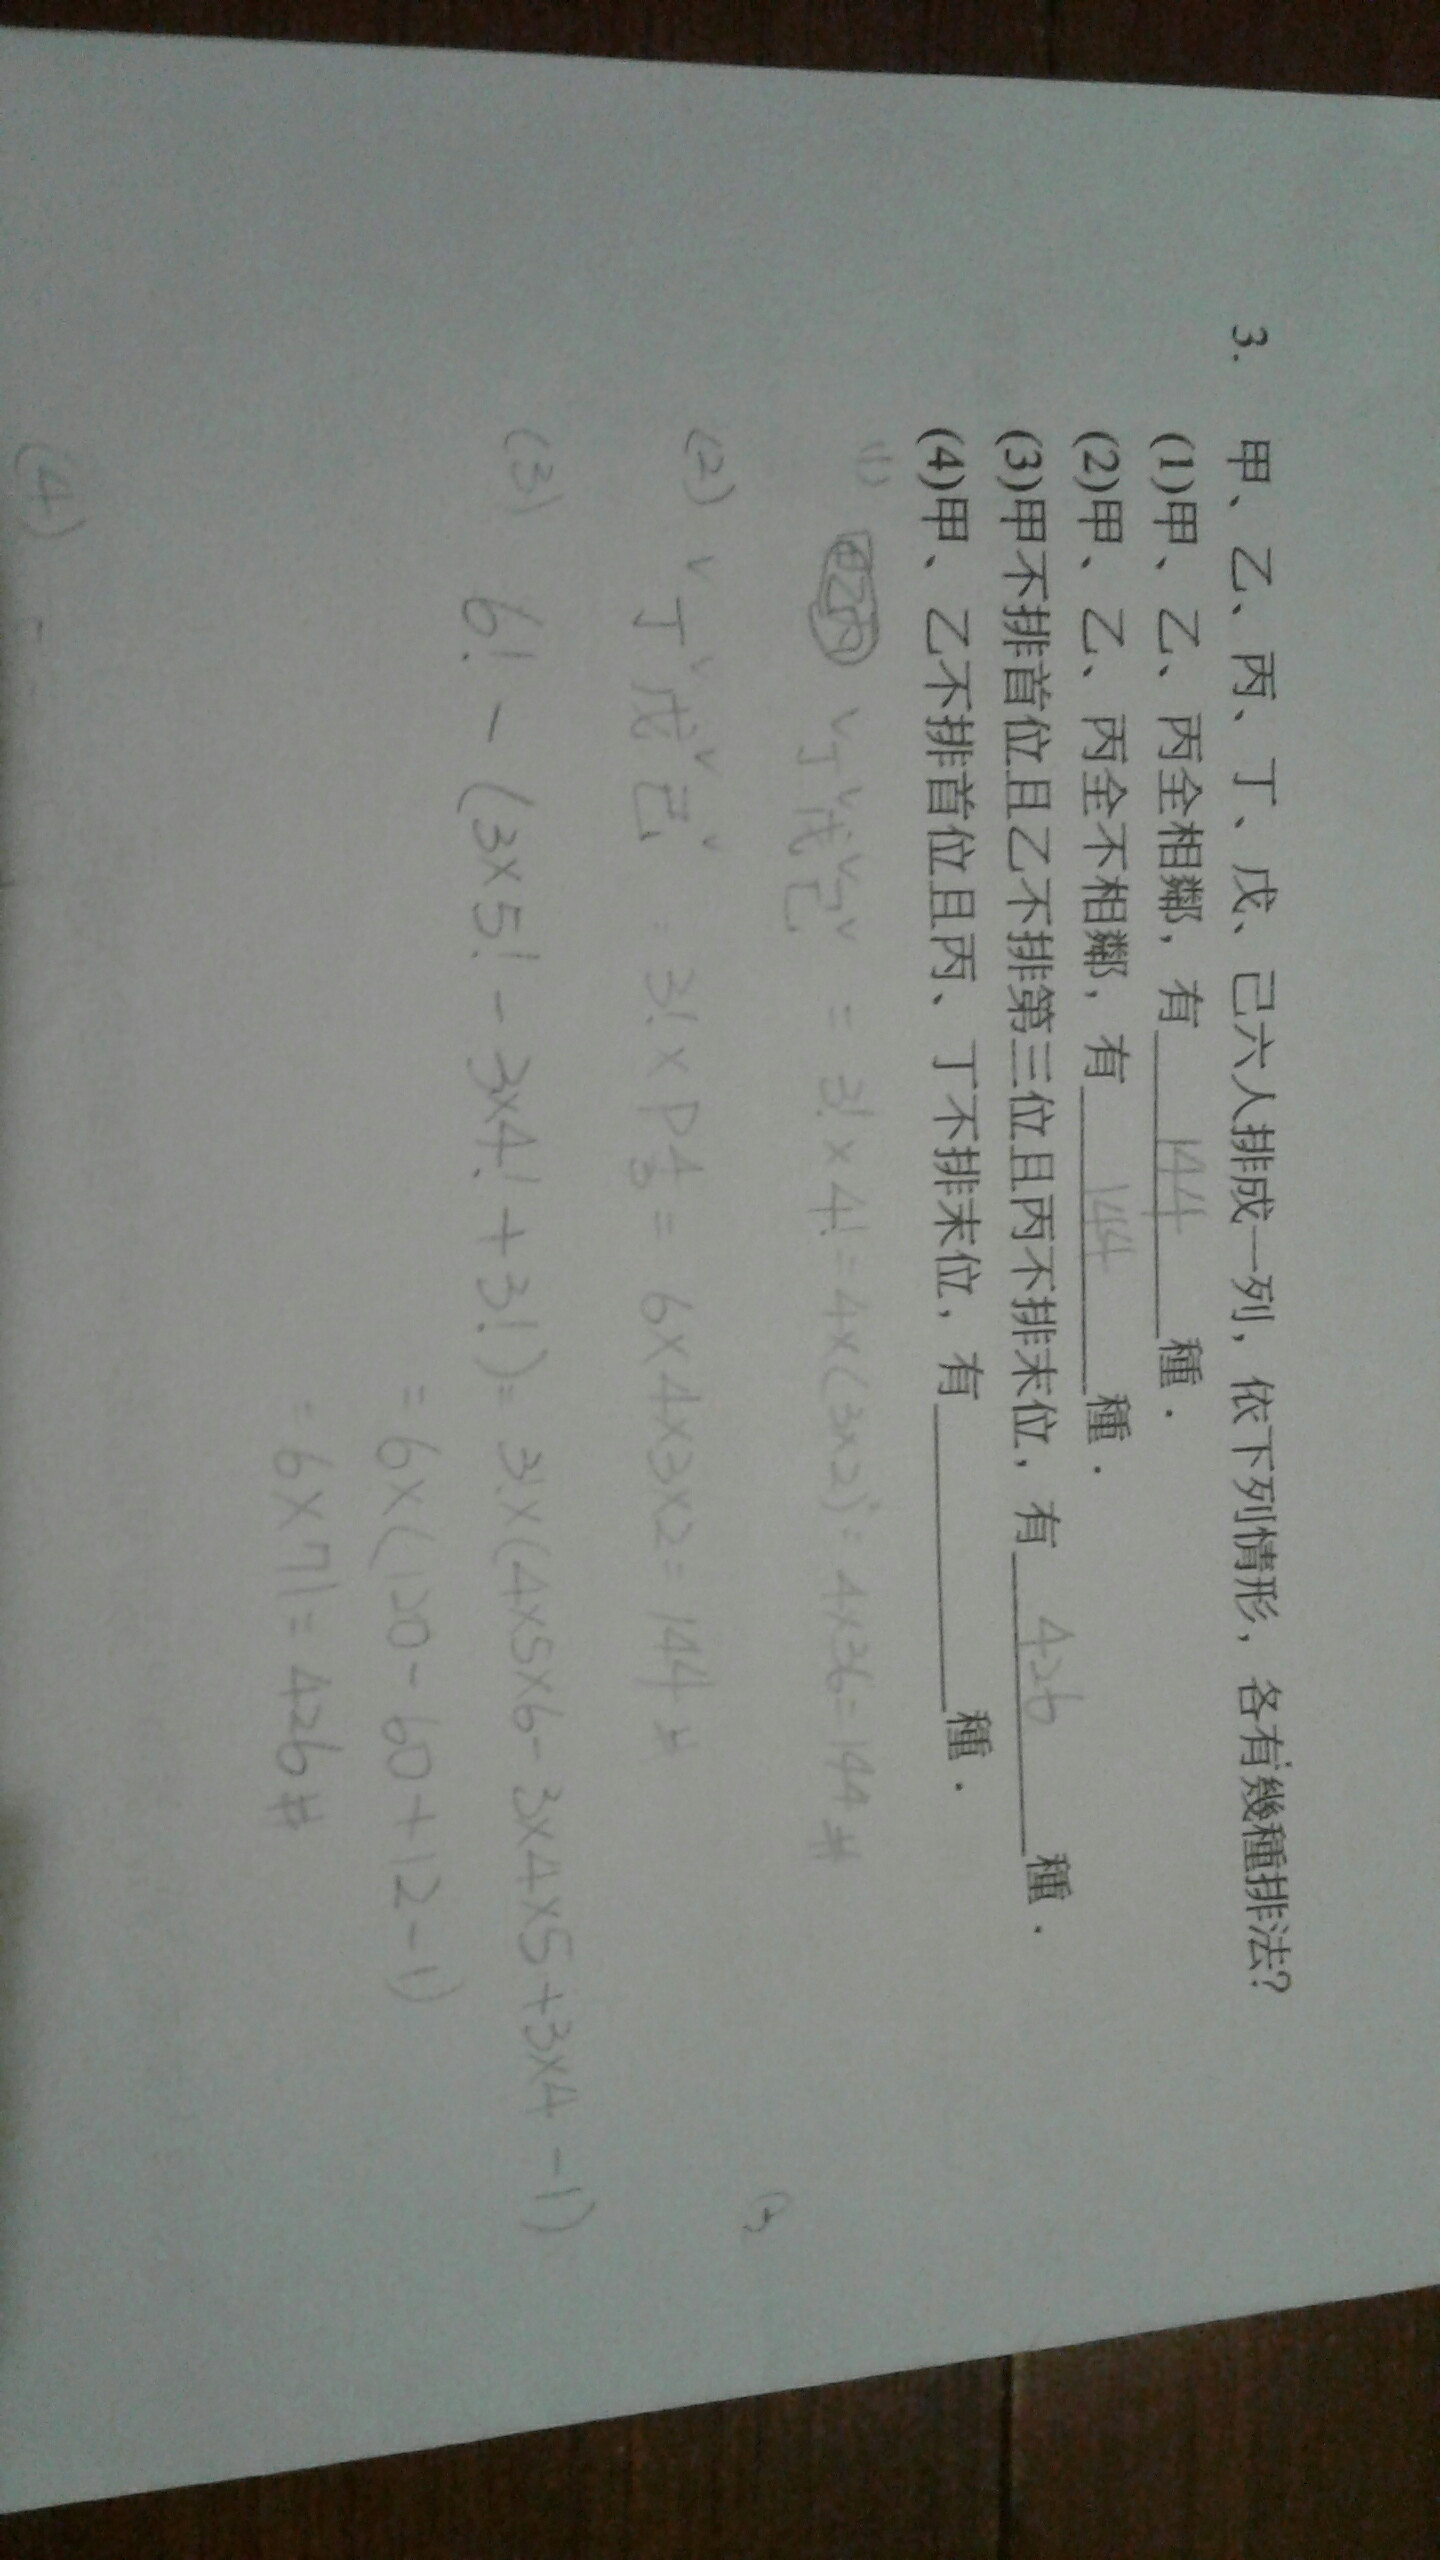 3. 甲、乙、丙、丁、戊、己六人排成一列，依下列情形，各有幾種排法?
(1)甲、乙、丙全相鄰，有 144 種．
(2)甲、乙、丙全不相鄰，有 144 種．
(3)甲不排首位且乙不排第三位且丙不排末位，有 426 種．
(4)甲、乙不排首位且丙、丁不排末位，有 種．
(1) 甲乙丙 ∨丁∨戊∨己∨ = 3! × 4! = 4×(3×2)² = 4×36 = 144 #
(2) ∨丁∨戊∨己∨ = 3! × P⁴₃ = 6×4×3×2 = 144 #
(3) 6! - (3×5! - 3×4! + 3!) = 3!×(4×5×6 - 3×4×5 + 3×4 - 1)
= 6×(120 - 60 + 12 - 1)
= 6×71 = 426 #
(4)